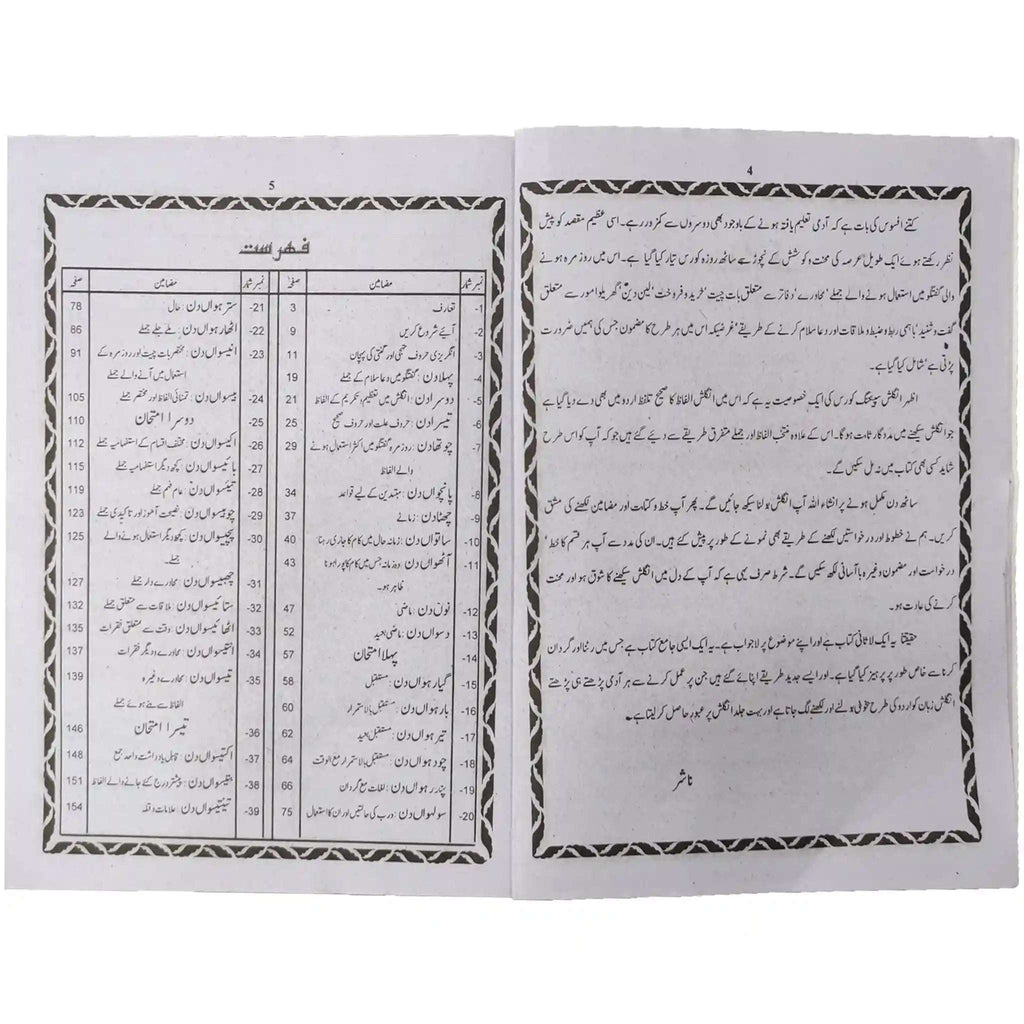 4
کتنے افسوس کی بات ہے کہ آدمی تعلیم یافتہ ہونے کے باوجود بھی دوسروں سے کمزور رہے۔ اسی عظیم مقصد کو پیش
نظر رکھتے ہوئے ایک طویل عرصہ کی محنت و کوشش کے نچوڑ سے ساٹھ روزہ کورس تیار کیا گیا ہے۔ اس میں روزمرہ ہونے
والی گفتگو میں استعمال ہونے والے جملے' محاورے' دفاتر سے متعلق بات چیت' خرید و فروخت' لین دین' گھریلو امور سے متعلق
گفت و شنید' باہمی ربط و ضبط و ملاقات اور دعا سلام کرنے کے طریقے' غرضیکہ اس میں ہر طرح کا مضمون جس کی ہمیں ضرورت
پڑتی ہے' شامل کیا گیا ہے۔
اظہر انگلش سپیکنگ کورس کی ایک خصوصیت یہ ہے کہ اس میں انگلش الفاظ کا صحیح تلفظ اردو میں بھی دے دیا گیا ہے
جو انگلش سیکھنے میں مددگار ثابت ہو گا۔ اس کے علاوہ منتخب الفاظ اور جملے متفرق طریقے سے دیئے گئے ہیں جو کہ آپ کو اس طرح
شاید کسی بھی کتاب میں نہ مل سکیں گے۔
ساٹھ دن مکمل ہونے پر انشاء اللہ آپ انگلش بولنا سیکھ جائیں گے۔ پھر آپ خط و کتابت اور مضامین لکھنے کی مشق
کریں۔ ہم نے خطوط اور درخواستیں لکھنے کے طریقے بھی نمونے کے طور پر پیش کئے ہیں۔ ان کی مدد سے آپ ہر قسم کا خط'
درخواست اور مضمون وغیرہ باآسانی لکھ سکیں گے۔ شرط صرف یہی ہے کہ آپ کے دل میں انگلش سیکھنے کا شوق ہو اور محنت
کرنے کی عادت ہو۔
حقیقتاً یہ ایک لاثانی کتاب ہے اور اپنے موضوع پر لاجواب ہے۔ یہ ایک ایسی جامع کتاب ہے جس میں رٹنا اور گردان
کرنا سے خاص طور پر پرہیز کیا گیا ہے۔ اور ایسے جدید طریقے اپنائے گئے ہیں جن پر عمل کرنے سے ہر آدمی پڑھتے ہی پڑھتے
انگلش زبان کو اردو کی طرح بخوبی بولنے اور لکھنے لگ جاتا ہے اور بہت جلد انگلش پر عبور حاصل کر لیتا ہے۔
ناشر
5
فہرست
نمبر شمار مضامین صفحہ
1- تعارف 3
2- آیئے شروع کریں 9
3- انگریزی حروف تہجی اور گنتی کی پہچان 11
4- پہلا دن: گفتگو میں دعا سلام کے جملے 19
5- دوسرا دن: انگلش میں تعظیم، تکریم کے الفاظ 21
6- تیسرا دن: حروف علت اور حروف صحیح 25
7- چوتھا دن: روزمرہ گفتگو میں اکثر استعمال ہونے 29
والے الفاظ
8- پانچواں دن: مبتدین کے لیے قواعد 34
9- چھٹا دن: زمانے 37
10- ساتواں دن: زمانہ حال میں کام کا جاری رہنا 40
11- آٹھواں دن: وہ زمانہ جس میں کام کا پورا ہونا 43
ظاہر ہو۔
12- نوں دن: ماضی 47
13- دسواں دن: ماضی بعید 52
14- پہلا امتحان 57
15- گیارہواں دن: مستقبل 58
16- بارہواں دن: مستقبل بالاستمرار 60
17- تیرہواں دن: مستقبل بعید 62
18- چودہواں دن: مستقبل بالاستمرار مع الوقت 64
19- پندرہواں دن: لغات مع گردان 66
20- سولہواں دن: درب کی حالتیں اور ان کا استعمال 75
نمبر شمار مضامین صفحہ
21- سترہواں دن: حال 78
22- اٹھارہواں دن: ملے جلے جملے 86
23- انیسواں دن: مختصر بات چیت اور روزمرہ کے 91
استعمال میں آنے والے جملے
24- بیسواں دن: تمنائی الفاظ اور مختصر جملے 105
25- دوسرا امتحان 110
26- اکیسواں دن: مختلف اقسام کے استفہامیہ جملے 112
27- بائیسواں دن: کچھ دیگر استفہامیہ جملے 115
28- تیئسواں دن: عام فہم جملے 119
29- چوبیسواں دن: نصیحت آموز اور تاکیدی جملے 123
30- پچیسواں دن: کچھ دیگر استعمال ہونے والے 125
جملے۔
31- چھبیسواں دن: محاورے دار جملے 127
32- ستائیسواں دن: ملاقات سے متعلق جملے 132
33- اٹھائیسواں دن: وقت سے متعلق فقرات 135
34- انتیسواں دن: محاورے و دیگر فقرات 137
35- تیسواں دن: محاورے وغیرہ 139
الفاظ سے بنے ہوئے جملے
36- تیسرا امتحان 146
37- اکتیسواں دن: قابل یادداشت واحد جمع 148
38- بتیسواں دن: پیشتر درج کئے جانے والے الفاظ 151
39- تینتیسواں دن: علامات وقفہ 154